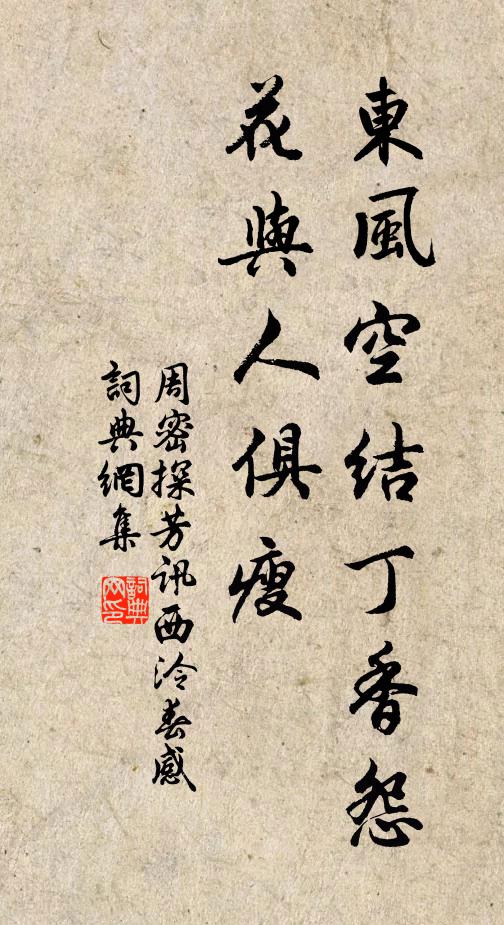 東風空結丁香怨
花與人俱瘦
周密探芳訊西泠春感
詞典網集
詞典網印